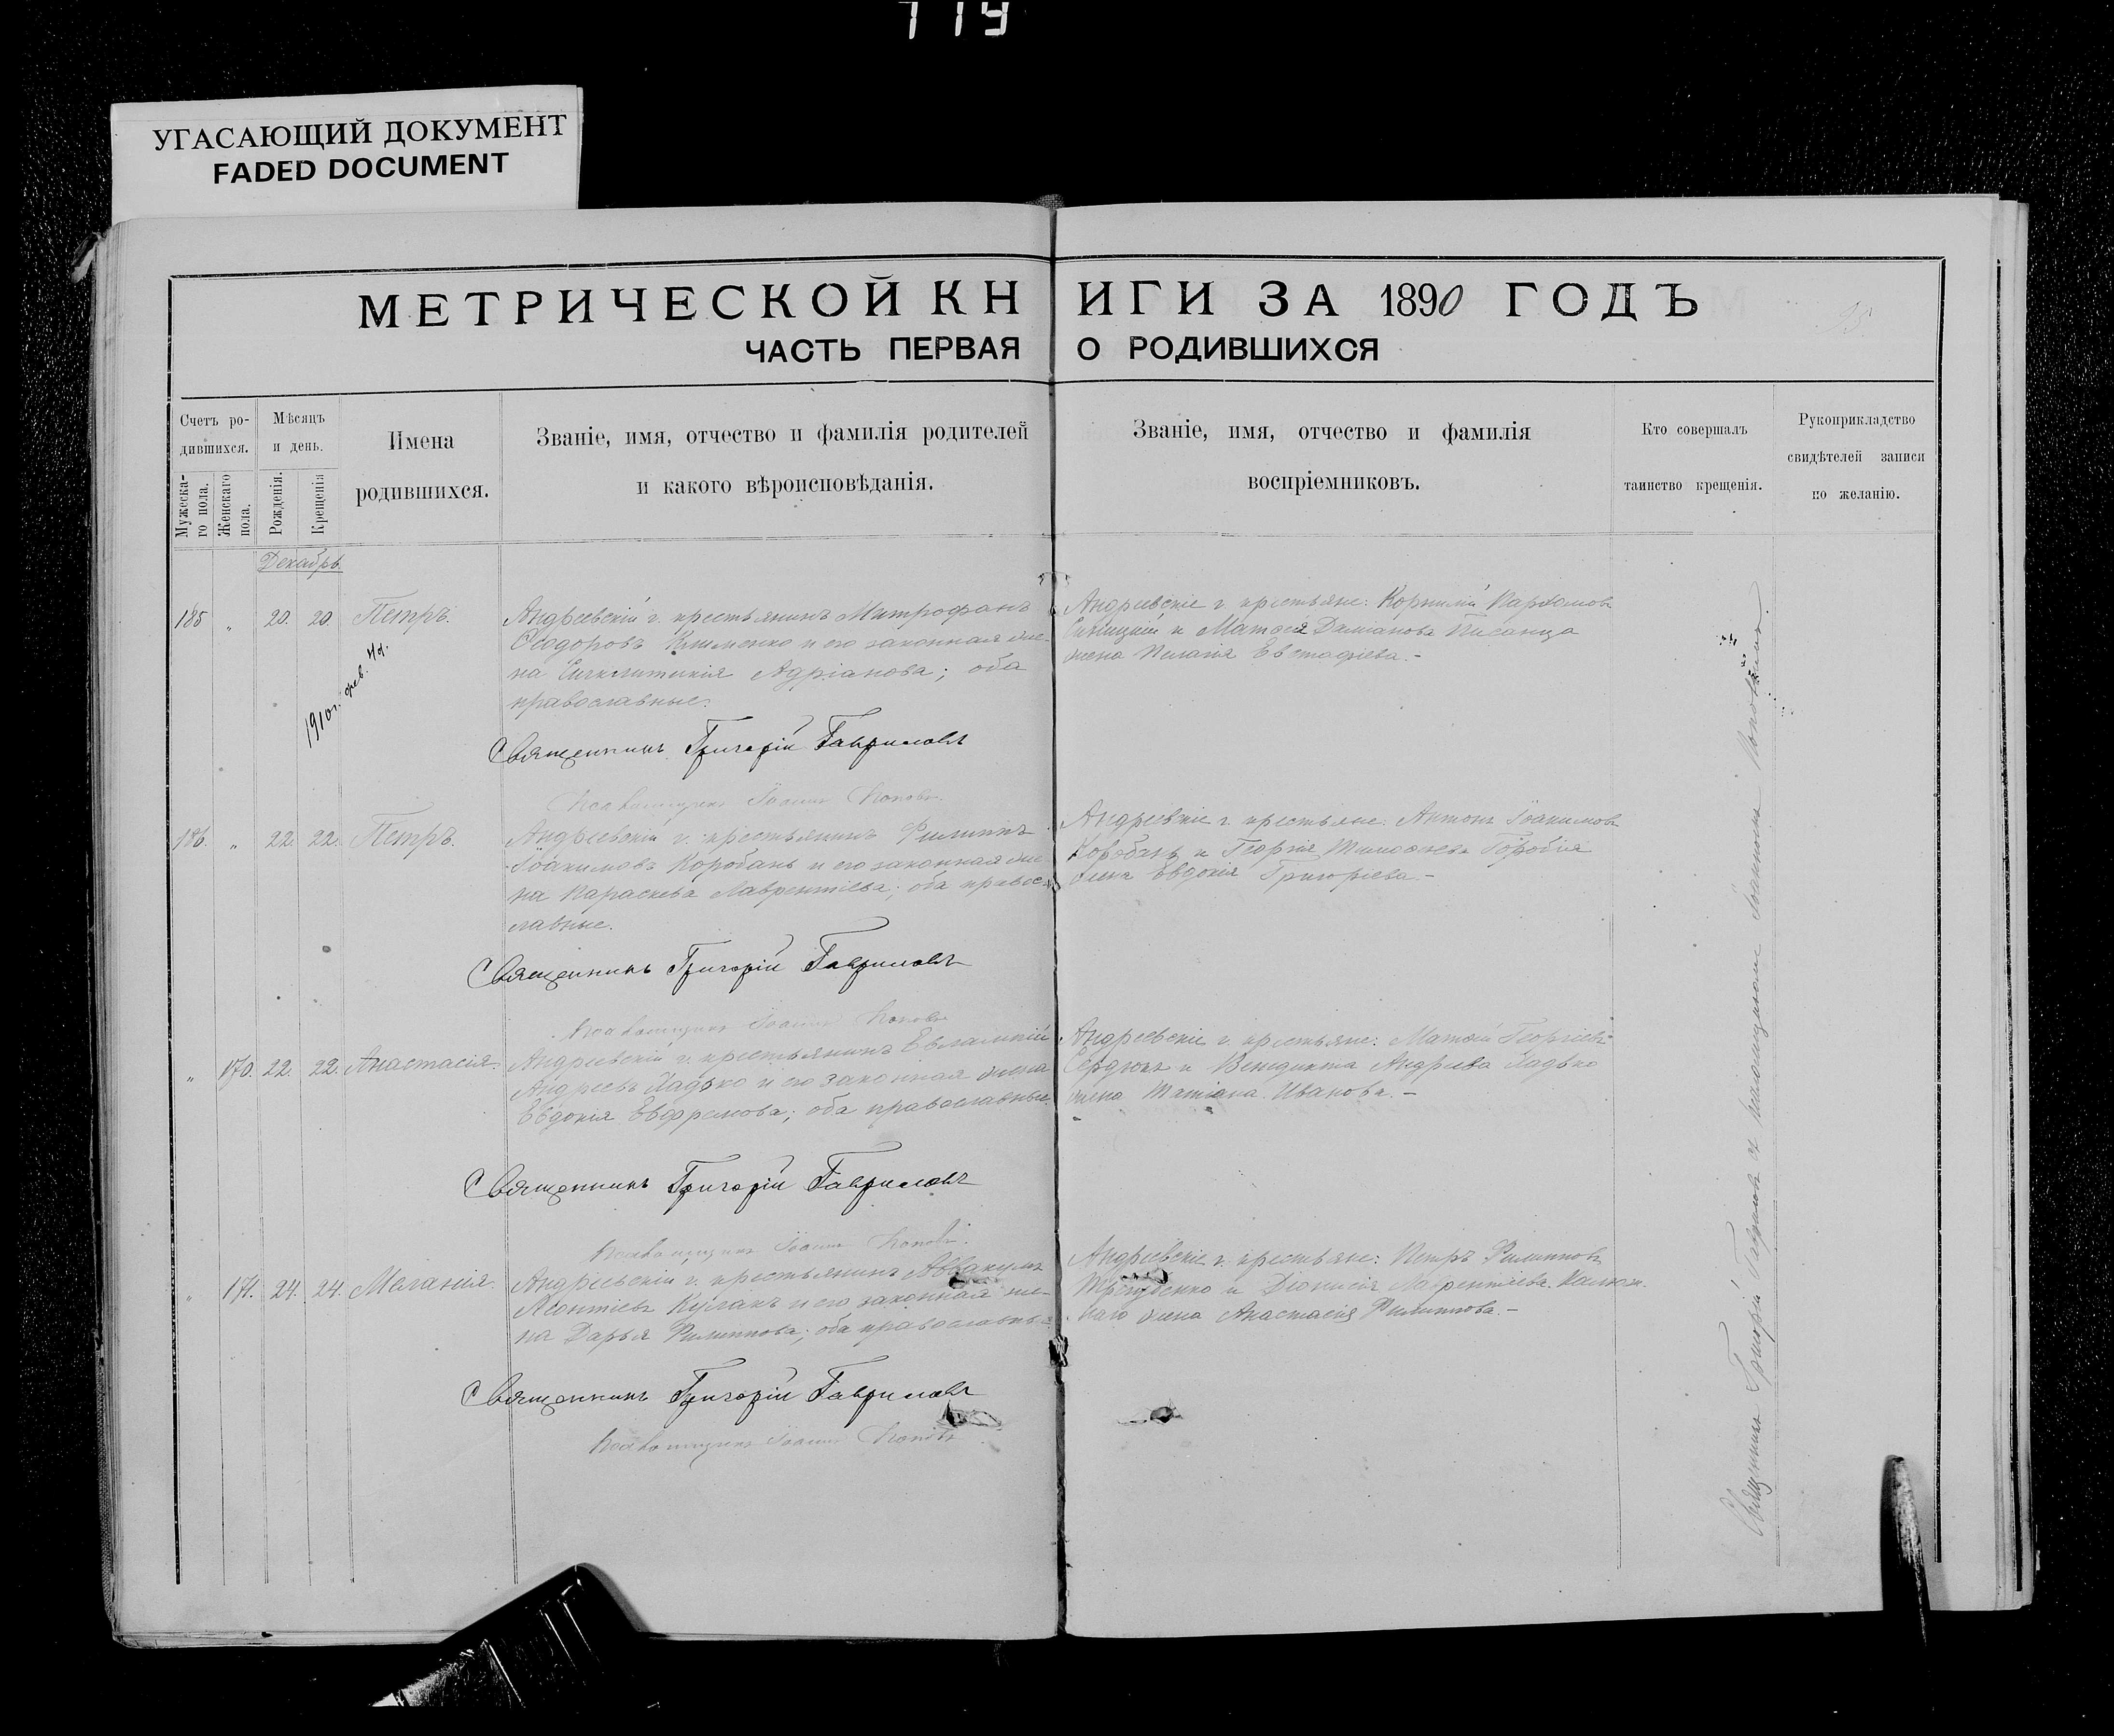 119
УГАСАЮЩИЙ ДОКУМЕНТ
FADED DOCUMENT
МЕТРИЧЕСКОЙ КНИГИ ЗА 1890 ГОДЪ
ЧАСТЬ ПЕРВАЯ О РОДИВШИХСЯ
Счетъ ро-
дившихся.
Мужеска-
го пола.
Женскаго
пола.
Мѣсяцъ
и день.
Рожденія.
Крещенія
Имена
родившихся.
Званіе, имя, отчество и фамилія родителей
и какого вѣроисповѣданія.
Званіе, имя, отчество и фамилія
воспріемниковъ.
Кто совершалъ
таинство крещенія.
Рукоприкладство
свидѣтелей записи
по желанію.
Декабрь.
185 „ 20. 20. Петръ.
1910 г. фев. 4 д.
Андреевскій г. крестьянинъ Митрофанъ
Ѳеодоровъ Клименко и его законная же-
на Адріанова; оба
православные.
Священникъ Григорій Гавриловъ
Псаломщикъ Іоаннъ Поповъ.
Андреевскіе г. крестьяне: Корнилій Парѳеновъ
Синицкій и Матѳея Даміанова Писанца
жена Пелагія Евстафіева.-
186. „ 22. 22. Петръ.
Андреевскій г. крестьянинъ Филиппъ
Іоакимовъ Коробань и его законная же-
на Параскева Лаврентіева; оба правос-
лавные.
Священникъ Григорій Гавриловъ
Псаломщикъ Іоаннъ Поповъ
Андреевскіе г. крестьяне: Антонъ Іоакимовъ
Коробань и Георгія Тимоѳеева Горобія
жена Евдокія Григоріева.-
„ 170. 22. 22. Анастасія.
Андреевскій г. крестьянинъ Евлампій
Андреевъ Ладько и его законная жена
Евдокія Евфремова; оба православные.
Священникъ Григорій Гавриловъ
Псаломщикъ Іоаннъ Поповъ.
Андреевскіе г. крестьяне: Матѳій Георгіевъ
Сердюкъ и Венедикта Андреева Ладько
жена Татіана Иванова.-
„ 171. 24. 24. Меланія.
Андреевскій г. крестьянинъ Аввакумъ
Леонтіевъ и его законная же-
на Дарья Филиппова; оба православные
Священникъ Григорій Гавриловъ
Псаломщикъ Іоаннъ Поповъ
Андреевскіе г. крестьяне: Петръ Филипповъ
и Діонисія Лаврентіева
жена Анастасія Филиппова.-
Священникъ Григорій Гавриловъ съ псаломщикомъ Іоанномъ Поповымъ.